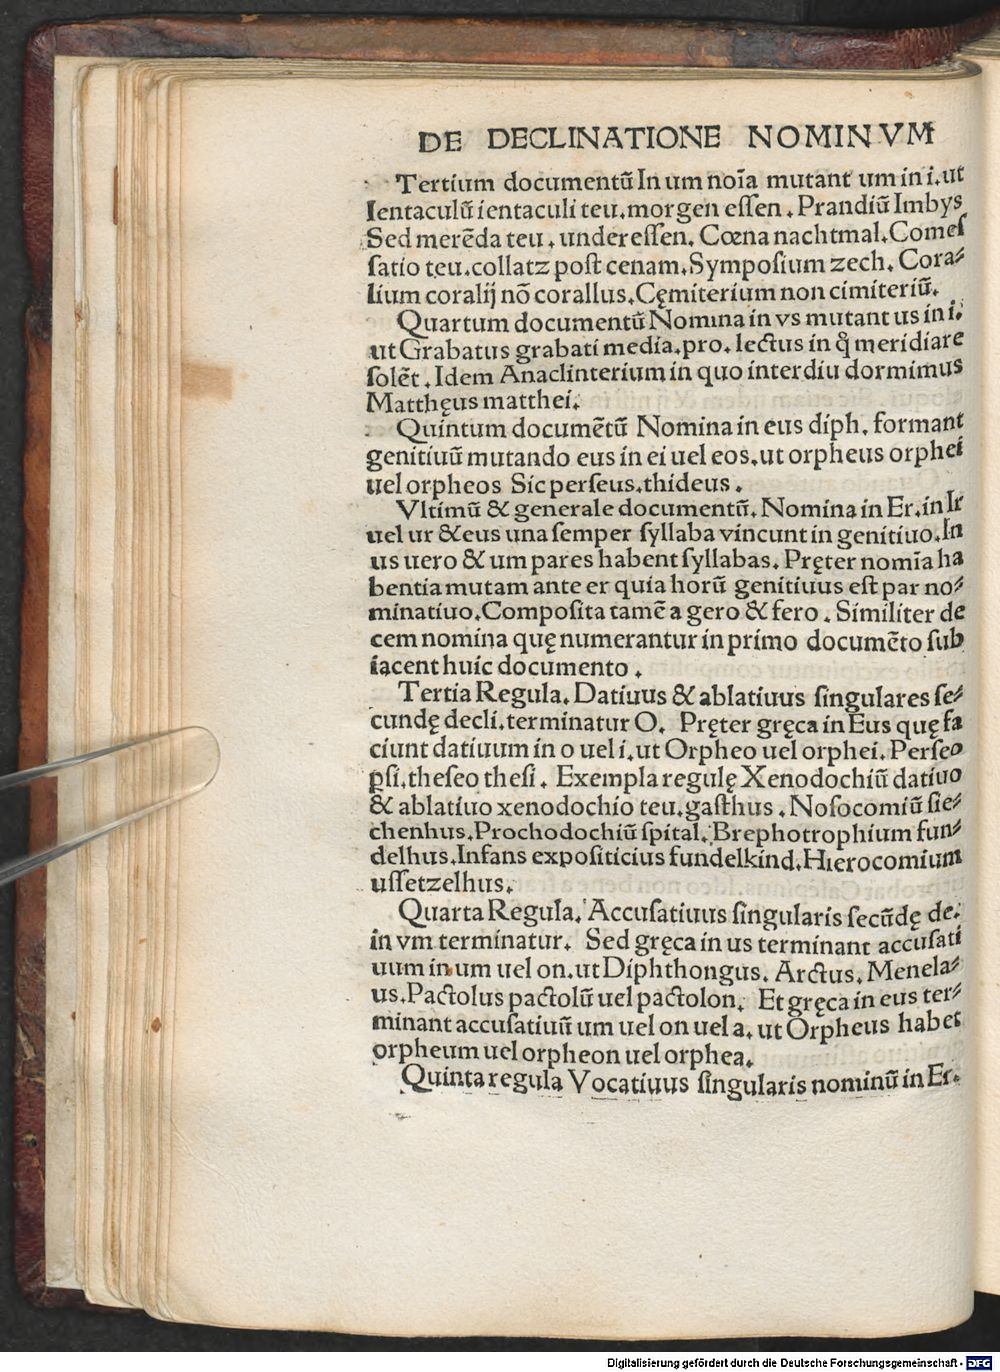 DE DECLINATIONE NOMINVM
Tertium documentū In um noīa mutant um in i.ut
Ientaculū ientaculi teu.morgen eſſen. Prandiū Imbys
Sed merēda teu. undereſſen. Cœna nachtmal.Comeſ
ſatio teu.collatz poſt cenam.Sympoſium zech. Cora⸗
lium coralij nō corallus.Cęmiterium non cimiteriū.
Quartum documentū Nomina in vs mutant us in i.
ut Grabatus grabati media.pro. lectus in q̊ meridiare
ſolēt. Idem Anaclinterium in quo interdiu dormimus
Matthęus matthei.
Quintum documētū Nomina in eus diph. formant
genitiuū mutando eus in ei uel eos.ut orpheus orphei
uel orpheos Sic perſeus.thideus.
Vltimū & generale documentū. Nomina in Er.in Ir
uel ur & eus una ſemper ſyllaba vincunt in genitiuo.In
us uero & um pares habent ſyllabas. Pręter nomīa ha
bentia mutam ante er quia horū genitiuus eſt par no⸗
minatiuo.Compoſita tamē a gero & fero. Similiter de
cem nomina quę numerantur in primo documēto ſub
iacent huic documento.
Tertia Regula. Datiuus & ablatiuus ſingulares ſe⸗
cundę decli.terminatur O. Pręter gręca in Eus quę fa
ciunt datiuum in o uel i.ut Orpheo uel orphei. Perſeo
ꝑſi.theſeo theſi. Exempla regulę Xenodochiū datiuo
& ablatiuo xenodochio teu.gaſthus. Noſocomiū ſie⸗
chenhus.Prochodochiū ſpital. Brephotrophium fun⸗
delhus.Infans expoſiticius fundelkind.Hierocomium
uſſetzelhus.
Quarta Regula. Accuſatiuus ſingularis ſecūdę de.
in vm terminatur. Sed gręca in us terminant accuſati
uum in um uel on.ut Diphthongus. Arctus. Menela⸗
us.Pactolus pactolū uel pactolon. Et gręca in eus ter⸗
minant accuſatiuū um uel on uel a. ut Orpheus habet
orpheum uel orpheon uel orphea.
Quinta regula Vocatiuus ſingularis nominū in Er.
Digitalisierung gefördert durch die Deutsche Forschungsgemeinschaft - DFG